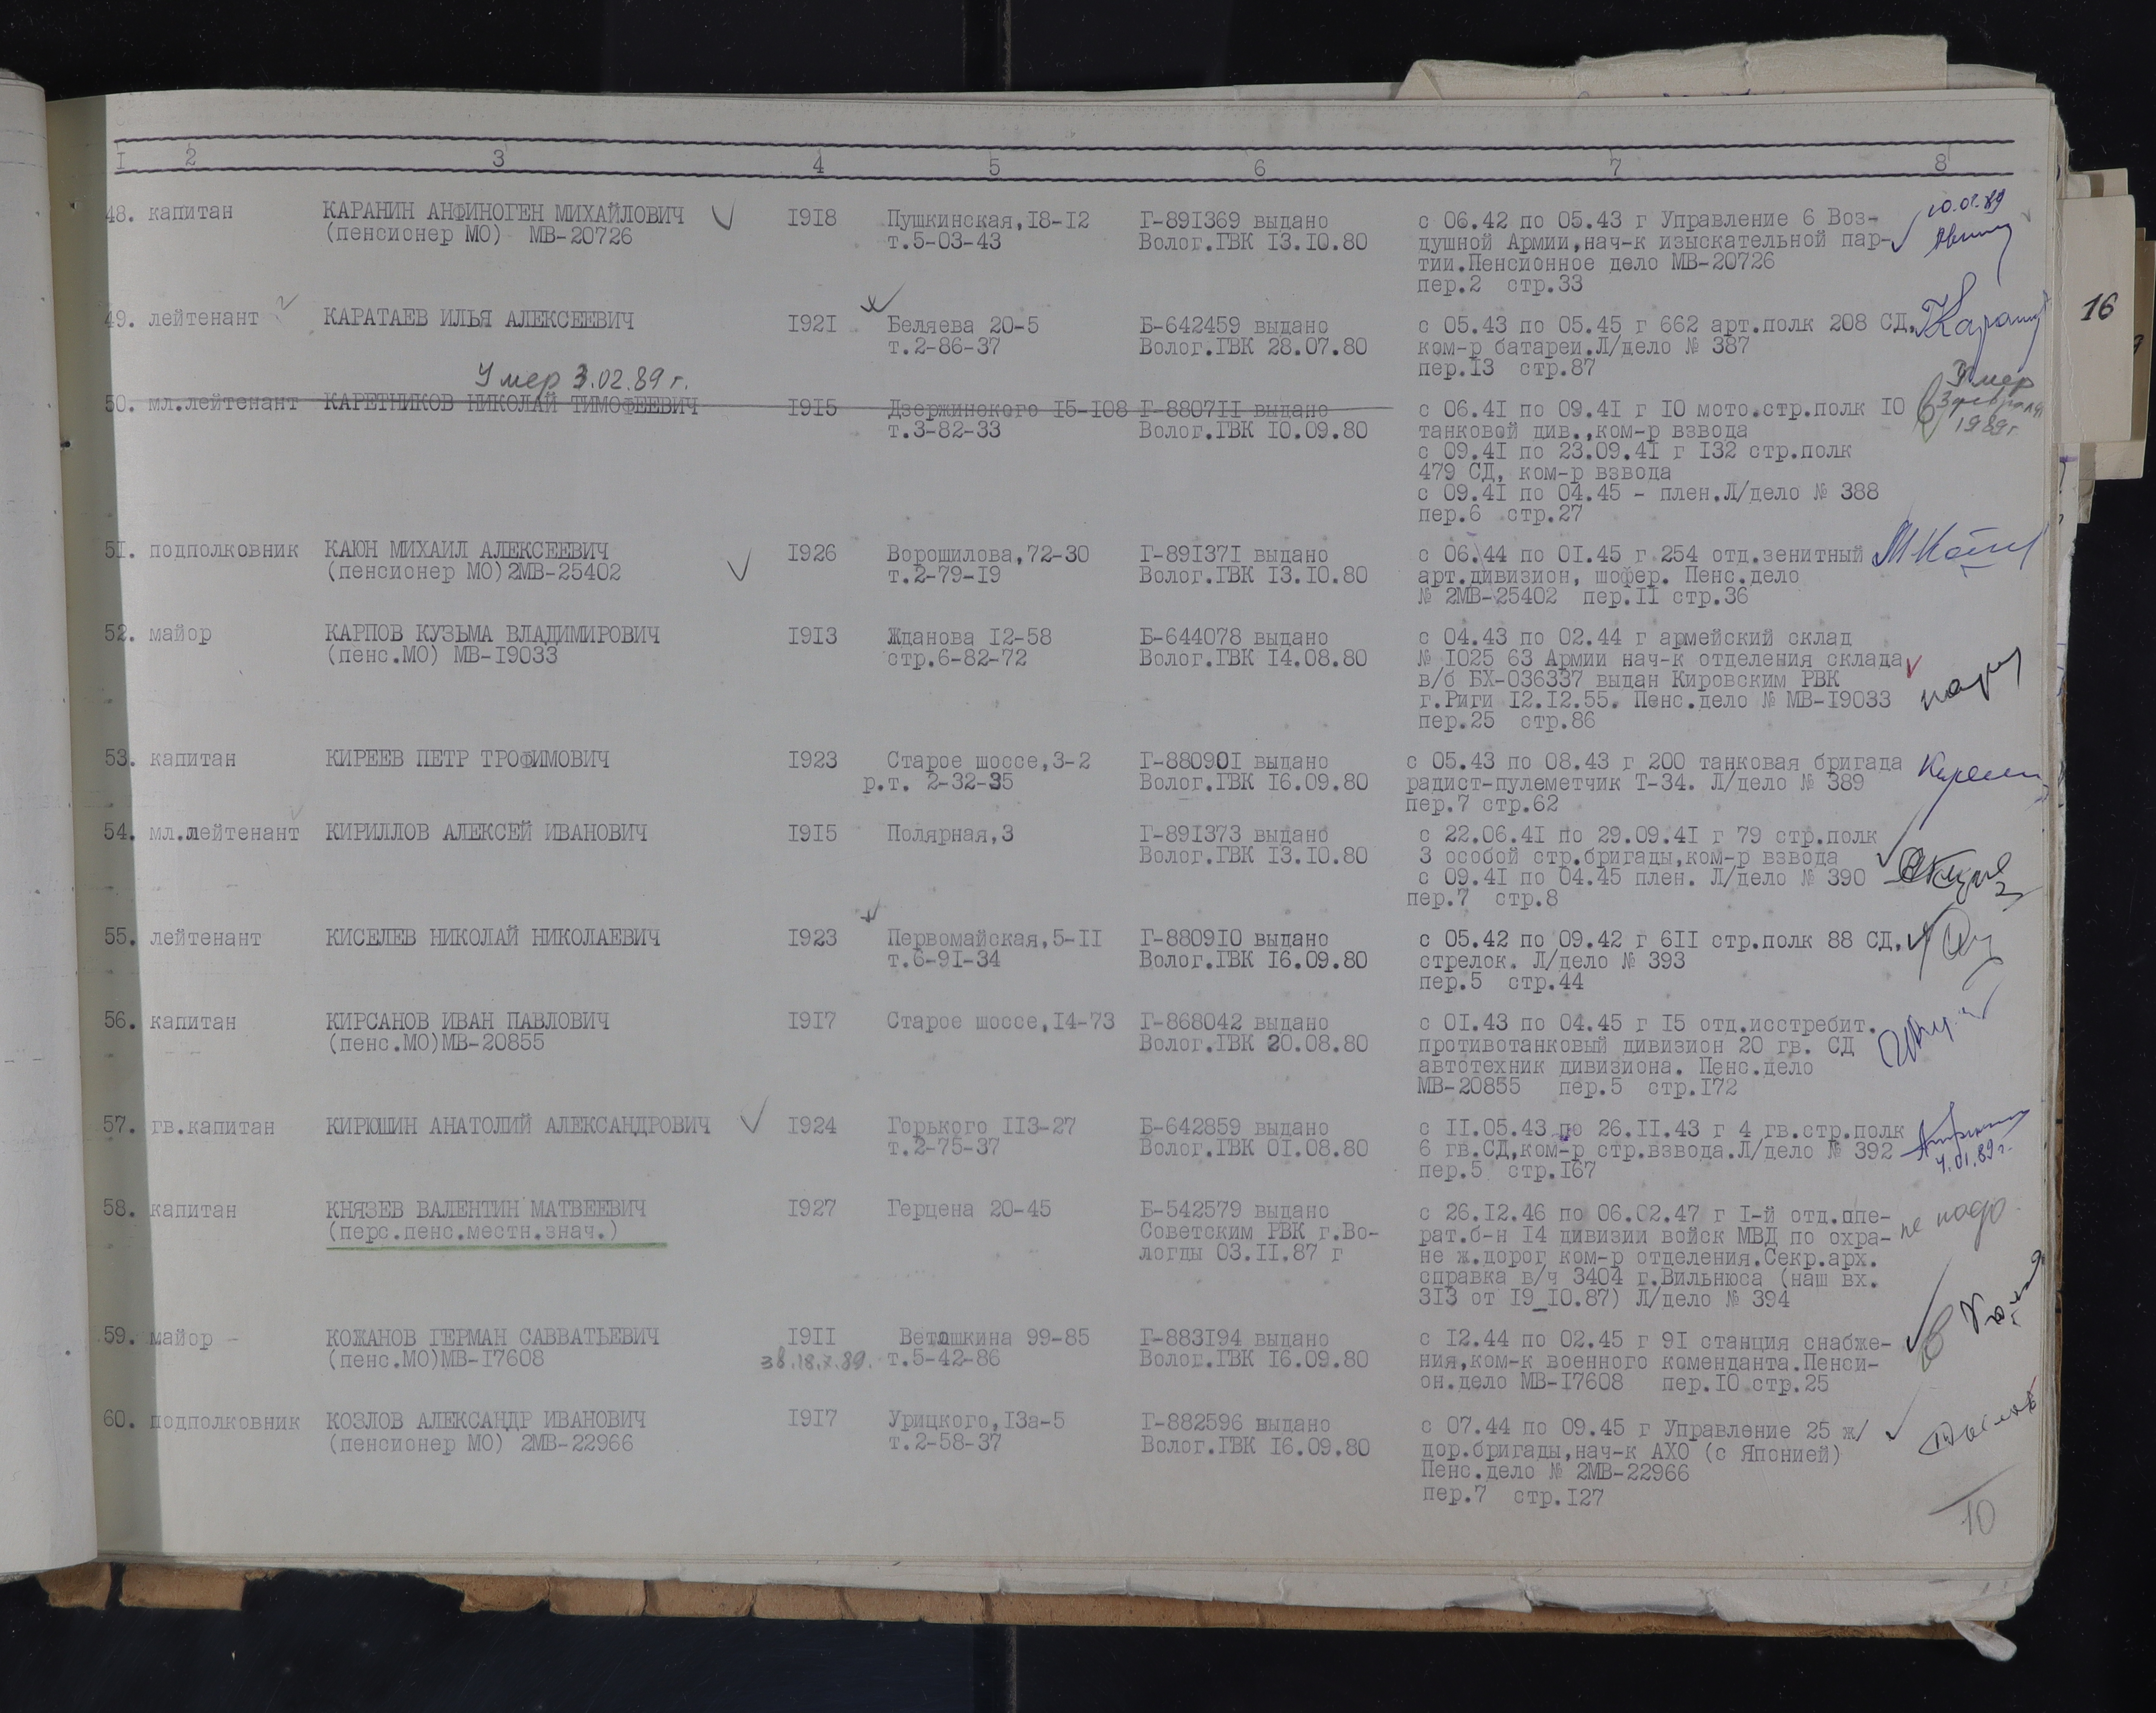 I 2 3 4 5 6 7 8
48. капитан КАРАНИН АНФИНОГЕН МИХАЙЛОВИЧ I9I8 Пушкинская,I8-I2 Г-89I369 выдано с 06.42 по 05.43 г Управление 6 Воз-
(пенсионер МО) МВ-20726 т.5-03-43 Волог.ГВК I3.I0.80 душной Армии,нач-к изыскательной пар-
тии.Пенсионное дело МВ-20726
пер.2 стр.33
49. лейтенант КАРАТАЕВ ИЛЬЯ АЛЕКСЕЕВИЧ I92I Беляева 20-5 Б-642459 выдано с 05.43 по 05.45 г 662 арт.полк 208 СД.
т.2-86-37 Волог.ГВК 28.07.80 ком-р батареи.Л/дело № 387
пер.I3 стр.87
Умер 3.02.89 г.
50. мл.лейтенант КАРЕТНИКОВ НИКОЛАЙ ТИМОФЕЕВИЧ I9I5 Дзержинского I5-I08 Г-8807II выдано с 06.4I по 09.4I г I0 мото.стр.полк I0 Умер
т.3-82-33 Волог.ГВК I0.09.80 танковой див.,ком-р взвода 3 февраля
с 09.4I по 23.09.4I г I32 стр.полк 1989г
479 СД, ком-р взвода
с 09.4I по 04.45 - плен.Л/дело № 388
пер.6 стр.27
5I. подполковник КАЮН МИХАИЛ АЛЕКСЕЕВИЧ I926 Ворошилова,72-30 Г-89I37I выдано с 06.44 по 0I.45 г 254 отд.зенитный
(пенсионер МО)2МВ-25402 т.2-79-I9 Волог.ГВК I3.I0.80 арт.дивизион, шофер. Пенс.дело
№ 2МВ-25402 пер.II стр.36
52. майор КАРПОВ КУЗЬМА ВЛАДИМИРОВИЧ I9I3 Жданова I2-58 Б-644078 выдано с 04.43 по 02.44 г армейский склад
(пенс.МО) МВ-I9033 стр.6-82-72 Волог.ГВК I4.08.80 № I025 63 Армии нач-к отделения склада
в/б БХ-036337 выдан Кировским РВК
г.Риги I2.I2.55. Пенс.дело № МВ-I9033
пер.25 стр.86
53. капитан КИРЕЕВ ПЕТР ТРОФИМОВИЧ I923 Старое шоссе,3-2 Г-88090I выдано с 05.43 по 08.43 г 200 танковая бригада
р.т. 2-32-35 Волог.ГВК I6.09.80 радист-пулеметчик Т-34. Л/дело № 389
пер.7 стр.62
54. мл.лейтенант КИРИЛЛОВ АЛЕКСЕЙ ИВАНОВИЧ I9I5 Полярная,3 Г-89I373 выдано с 22.06.4I по 29.09.4I г 79 стр.полк
Волог.ГВК I3.I0.80 3 особой стр.бригады,ком-р взвода
с 09.4I по 04.45 плен. Л/дело № 390
пер.7 стр.8
55. лейтенант КИСЕЛЕВ НИКОЛАЙ НИКОЛАЕВИЧ I923 Первомайская,5-II Г-8809I0 выдано с 05.42 по 09.42 г 6II стр.полк 88 СД,
т.6-9I-34 Волог.ГВК I6.09.80 стрелок. Л/дело № 393
пер.5 стр.44
56. капитан КИРСАНОВ ИВАН ПАВЛОВИЧ I9I7 Старое шоссе,I4-73 Г-868042 выдано с 0I.43 по 04.45 г I5 отд.исстребит.
(пенс.МО)МВ-20855 Волог.ГВК 20.08.80 противотанковый дивизион 20 гв. СД
автотехник дивизиона. Пенс.дело
МВ-20855 пер.5 стр.I72
57. гв.капитан КИРЮШИН АНАТОЛИЙ АЛЕКСАНДРОВИЧ I924 Горького II3-27 Б-642859 выдано с II.05.43 по 26.II.43 г 4 гв.стр.полк
т.2-75-37 Волог.ГВК 0I.08.80 6 гв.СД,ком-р стр.взвода.Л/дело № 392
пер.5 стр.I67
58. капитан КНЯЗЕВ ВАЛЕНТИН МАТВЕЕВИЧ I927 Герцена 20-45 Б-542579 выдано с 26.I2.46 по 06.02.47 г I-й отд.опе- не надо.
(перс.пенс.местн.знач.) Советским РВК г.Во- рат.б-н I4 дивизии войск МВД по охра-
логды 03.II.87 г не ж.дорог ком-р отделения.Секр.арх.
справка в/ч 3404 г.Вильнюса (наш вх.
3I3 от I9_I0.87) Л/дело № 394
59. майор - КОЖАНОВ ГЕРМАН САВВАТЬЕВИЧ I9II Ветошкина 99-85 Г-883I94 выдано с I2.44 по 02.45 г 9I станция снабже-
(пенс.МО)МВ-I7608 т.5-42-86 Волог.ГВК I6.09.80 ния,ком-к военного коменданта.Пенси-
он.дело МВ-I7608 пер.I0 стр.25
60. подполковник КОЗЛОВ АЛЕКСАНДР ИВАНОВИЧ I9I7 Урицкого,I3а-5 Г-882596 выдано с 07.44 по 09.45 г Управление 25 ж/
(пенсионер МО) 2МВ-22966 т.2-58-37 Волог.ГВК I6.09.80 дор.бригады,нач-к АХО (с Японией)
Пенс.дело № 2МВ-22966
пер.7 стр.I27
10
16